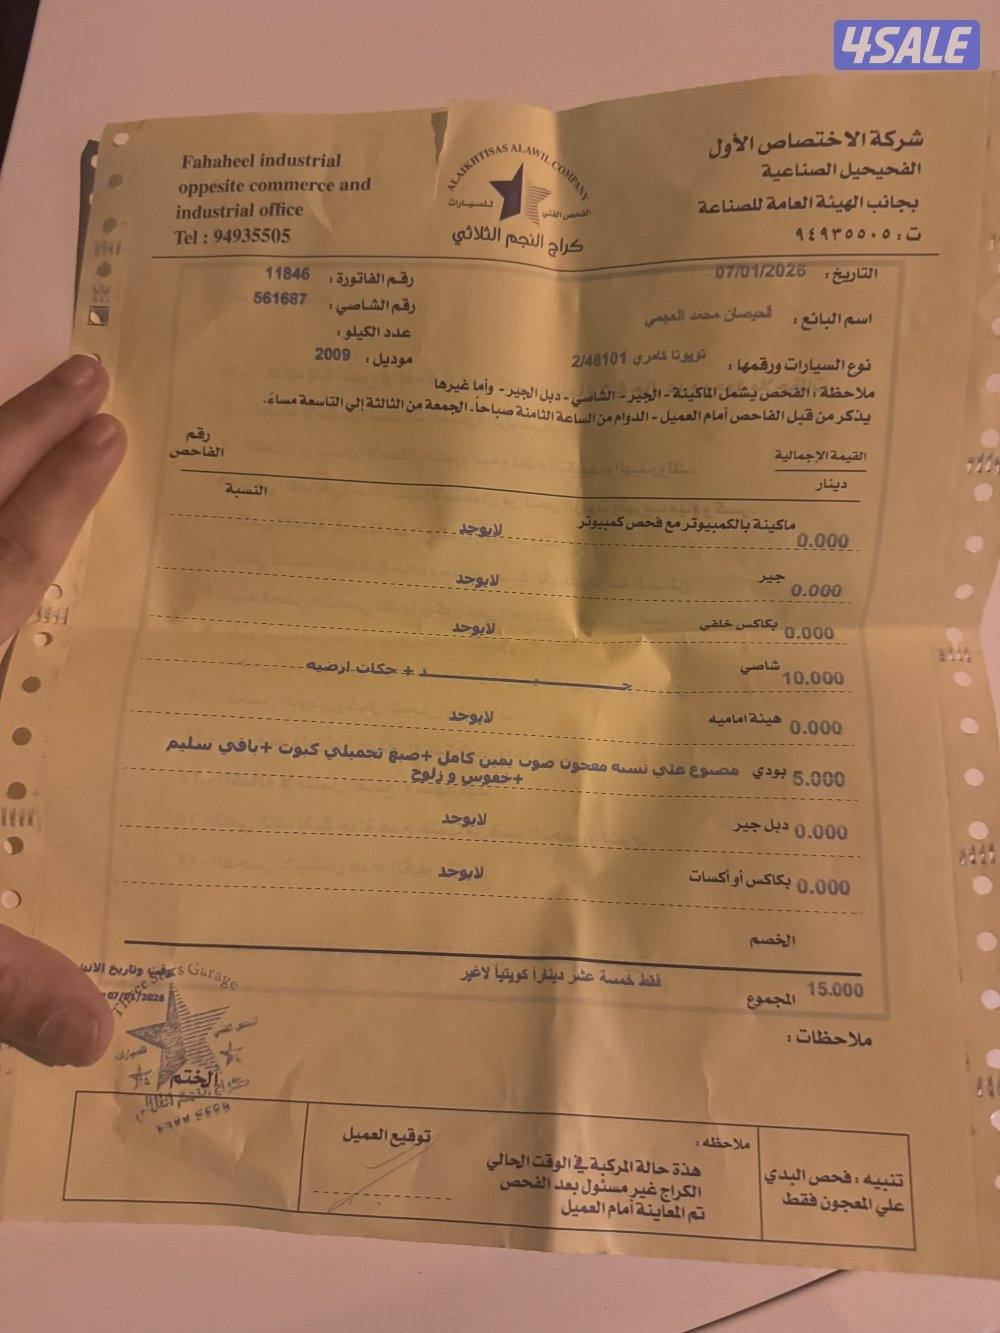 4SALE
شركة الاختصاص الأول
الفحيحيل الصناعية
بجانب الهيئة العامة للصناعة
ت: ٩٤٩٣٥٥٠٥
ALAIKHTISAS ALAWIL COMPANY
الفحص الفني للسيارات
كراج النجم الثلاثي
Fahaheel industrial
oppesite commerce and
industrial office
Tel : 94935505
التاريخ: 07/01/2026
رقم الفاتورة: 11846
اسم البائع: قحيصان محمد العجمي
رقم الشاصي: 561687
عدد الكيلو:
نوع السيارات ورقمها: تويوتا كامري 2/48101
موديل: 2009
ملاحظة: الفحص يشمل الماكينة - الجير - الشاصي - دبل الجير - وأما غيرها
يذكر من قبل الفاحص أمام العميل - الدوام من الساعة الثامنة صباحاً. الجمعة من الثالثة إلى التاسعة مساءً.
القيمة الإجمالية
دينار
رقم الفاحص
النسبة
0.000 ماكينة بالكمبيوتر مع فحص كمبيوتر لايوجد
0.000 جير لايوجد
0.000 بكاكس خلفي لايوجد
10.000 شاصي جـــــيـــــد + حكات ارضيه
0.000 هيئة اماميه لايوجد
5.000 بودي مصبوغ علي نسبه معجون صوب يمين كامل +صبغ تجميلي كبوت +باقي سليم
+خفوس و زلوخ
0.000 دبل جير لايوجد
0.000 بكاكس أو أكسات لايوجد
الخصم
15.000 المجموع فقط خمسة عشر ديناراً كويتياً لاغير
وقت وتاريخ
07/01/2026
Three Stars Garage
الفحص الفني
للسيارات
الختم
ملاحظات:
تنبيه: فحص البدي
علي المعجون فقط
ملاحظه:
هذة حالة المركبة في الوقت الحالي
الكراج غير مسئول بعد الفحص
تم المعاينة أمام العميل
توقيع العميل